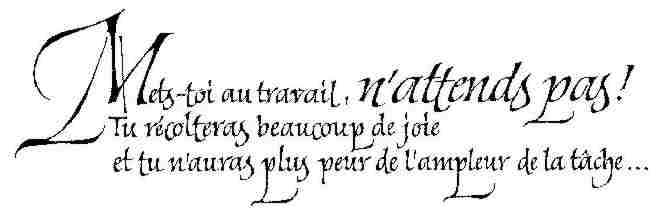 Mets-toi au travail, n'attends pas!
Tu récolteras beaucoup de joie
et tu n'auras plus peur de l'ampleur de la tâche...